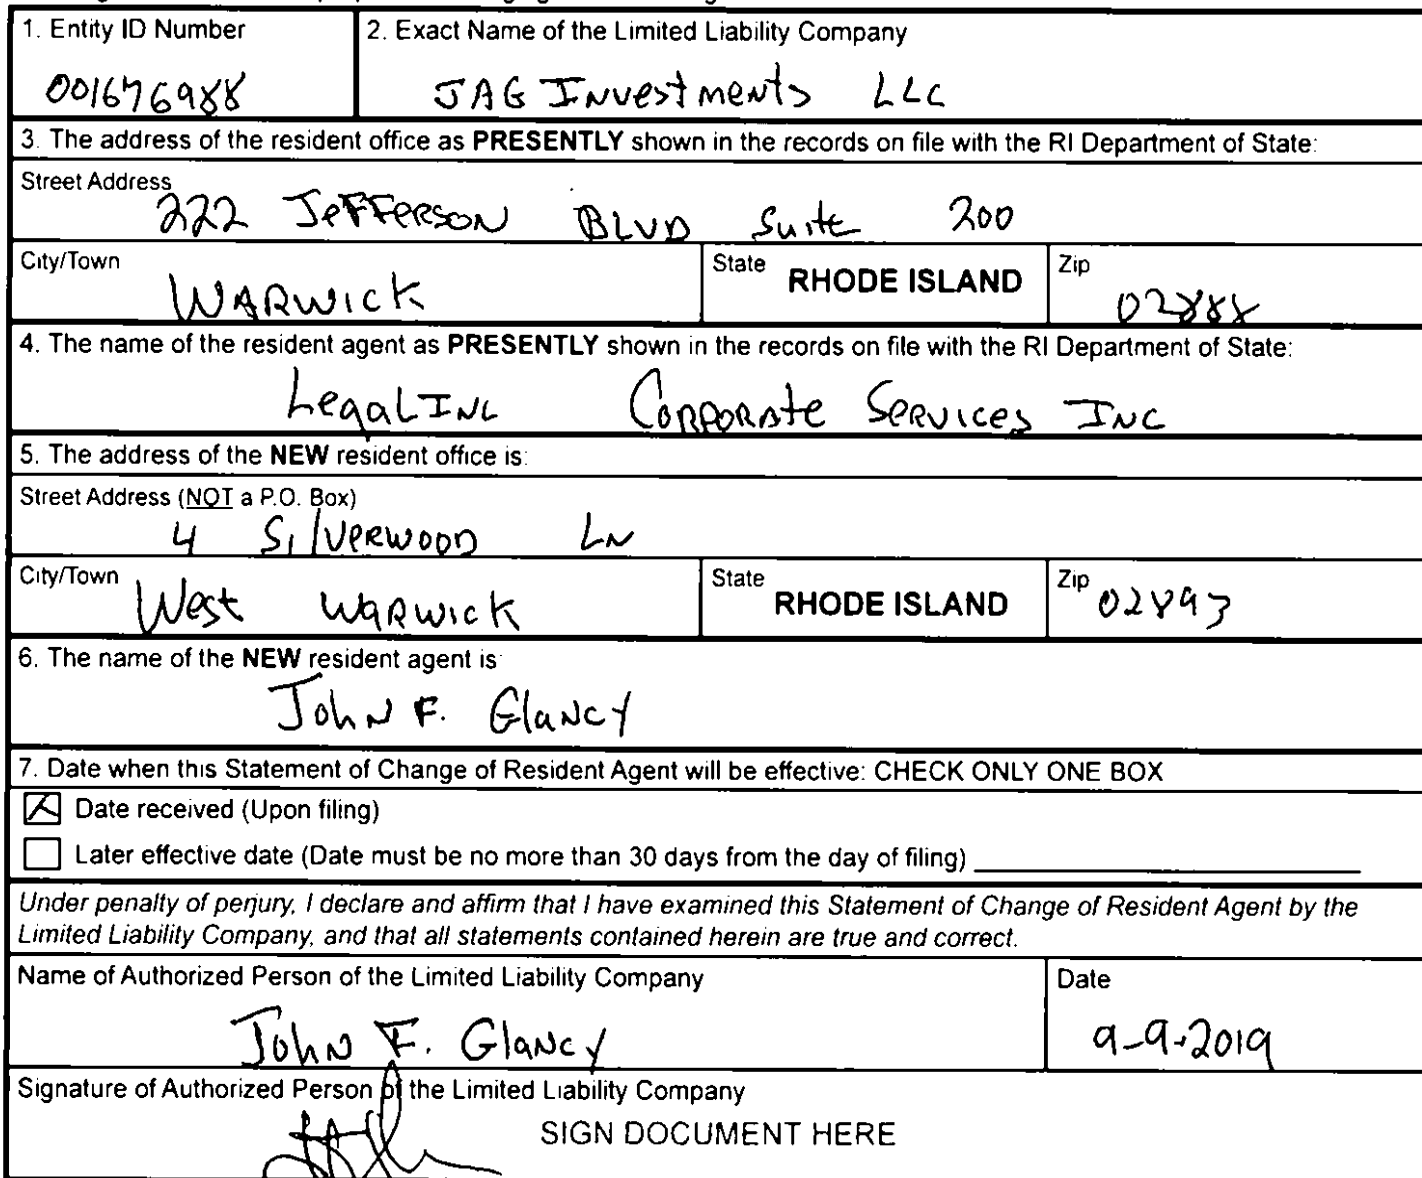 1. Entity ID Number
001676988
2. Exact Name of the Limited Liability Company
JAG Investments LLC
3. The address of the resident office as PRESENTLY shown in the records on file with the RI Department of State:
Street Address
222 Jefferson BLVD Suite 200
City/Town
WARWICK
State RHODE ISLAND
Zip
02888
4. The name of the resident agent as PRESENTLY shown in the records on file with the RI Department of State:
LegalInc Corporate Services Inc
5. The address of the NEW resident office is:
Street Address (NOT a P.O. Box)
4 Silverwood Ln
City/Town
West Warwick
State RHODE ISLAND
Zip 02893
6. The name of the NEW resident agent is
John F. Glancy
7. Date when this Statement of Change of Resident Agent will be effective: CHECK ONLY ONE BOX
Date received (Upon filing)
Later effective date (Date must be no more than 30 days from the day of filing)
Under penalty of perjury, I declare and affirm that I have examined this Statement of Change of Resident Agent by the
Limited Liability Company, and that all statements contained herein are true and correct.
Name of Authorized Person of the Limited Liability Company
John F. Glancy
Date
9-9-2019
Signature of Authorized Person of the Limited Liability Company
SIGN DOCUMENT HERE